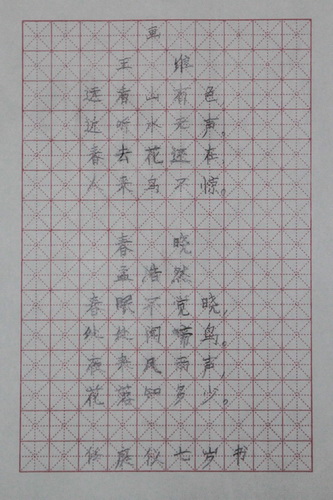 画
王 维
远看山有色
近听水无声，
春去花还在，
人来鸟不惊。
春 晓
孟浩然
春眠不觉晓，
处处闻啼鸟。
夜来风雨声，
花落知多少。
七岁书